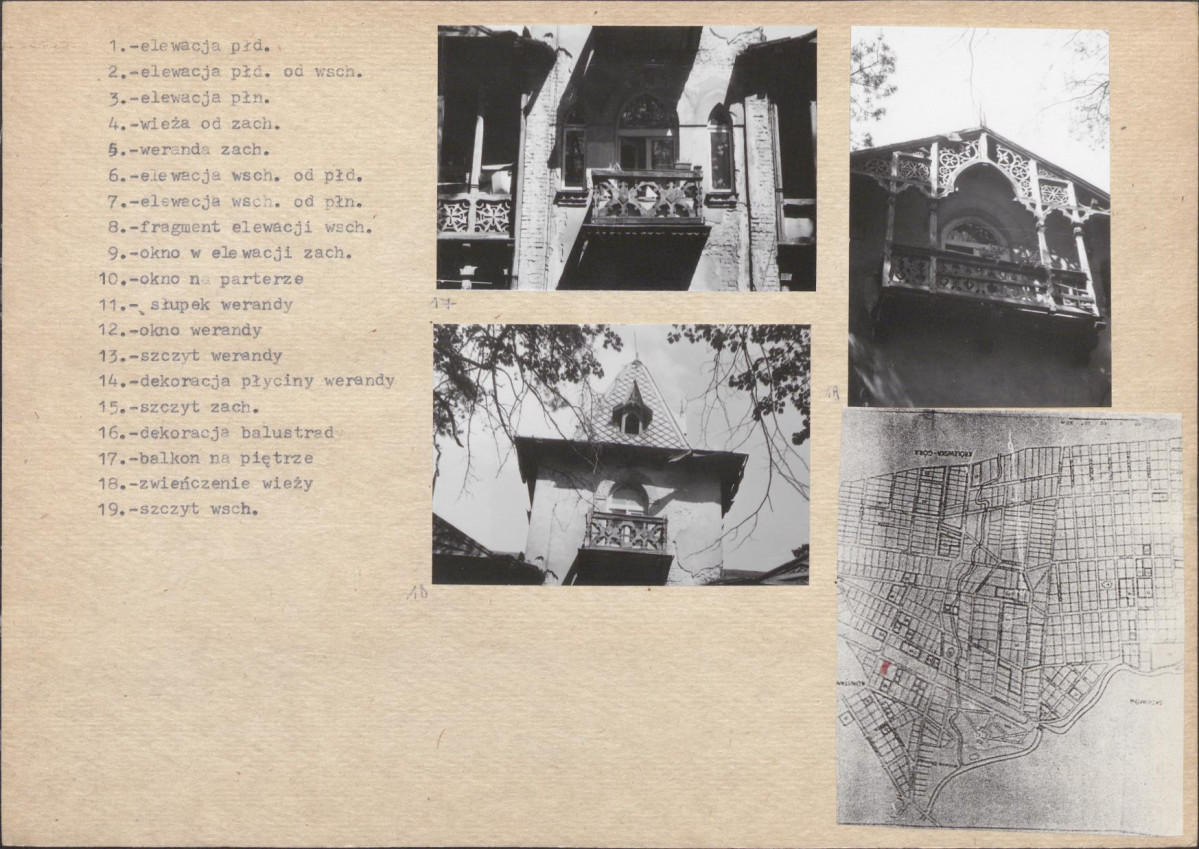 1.-elewacja płd.
2.-elewacja płd. od wsch.
3.-elewacja płn.
4.-wieża od zach.
5.-weranda zach.
6.-elewacja wsch. od płd.
7.-elewacja wsch. od płn.
8.-fragment elewacji wsch.
9.-okno w elewacji zach.
10.-okno na parterze
11.- słupek werandy
12.-okno werandy
13.-szczyt werandy
14.-dekoracja płyciny werandy
15.-szczyt zach.
16.-dekoracja balustrad
17.-balkon na piętrze
18.-zwieńczenie wieży
19.-szczyt wsch.
17
18
KRÓLEWSKA-GÓRA